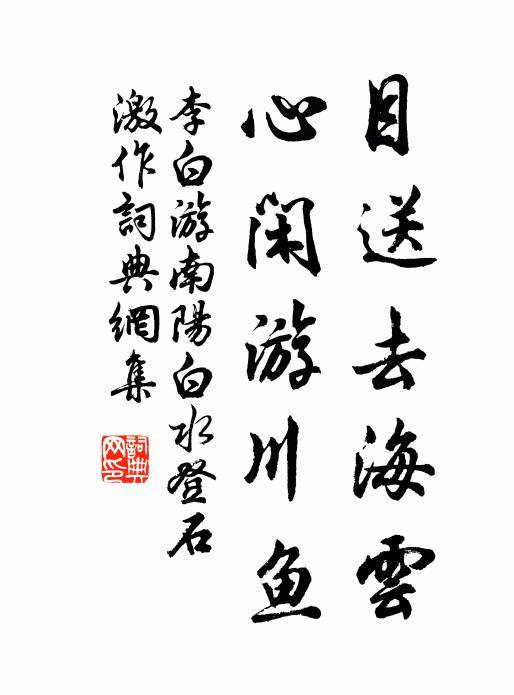 目送去海雲
心闲游川鱼
李白游南陽白水登石
激作詞典網集
詞典网印